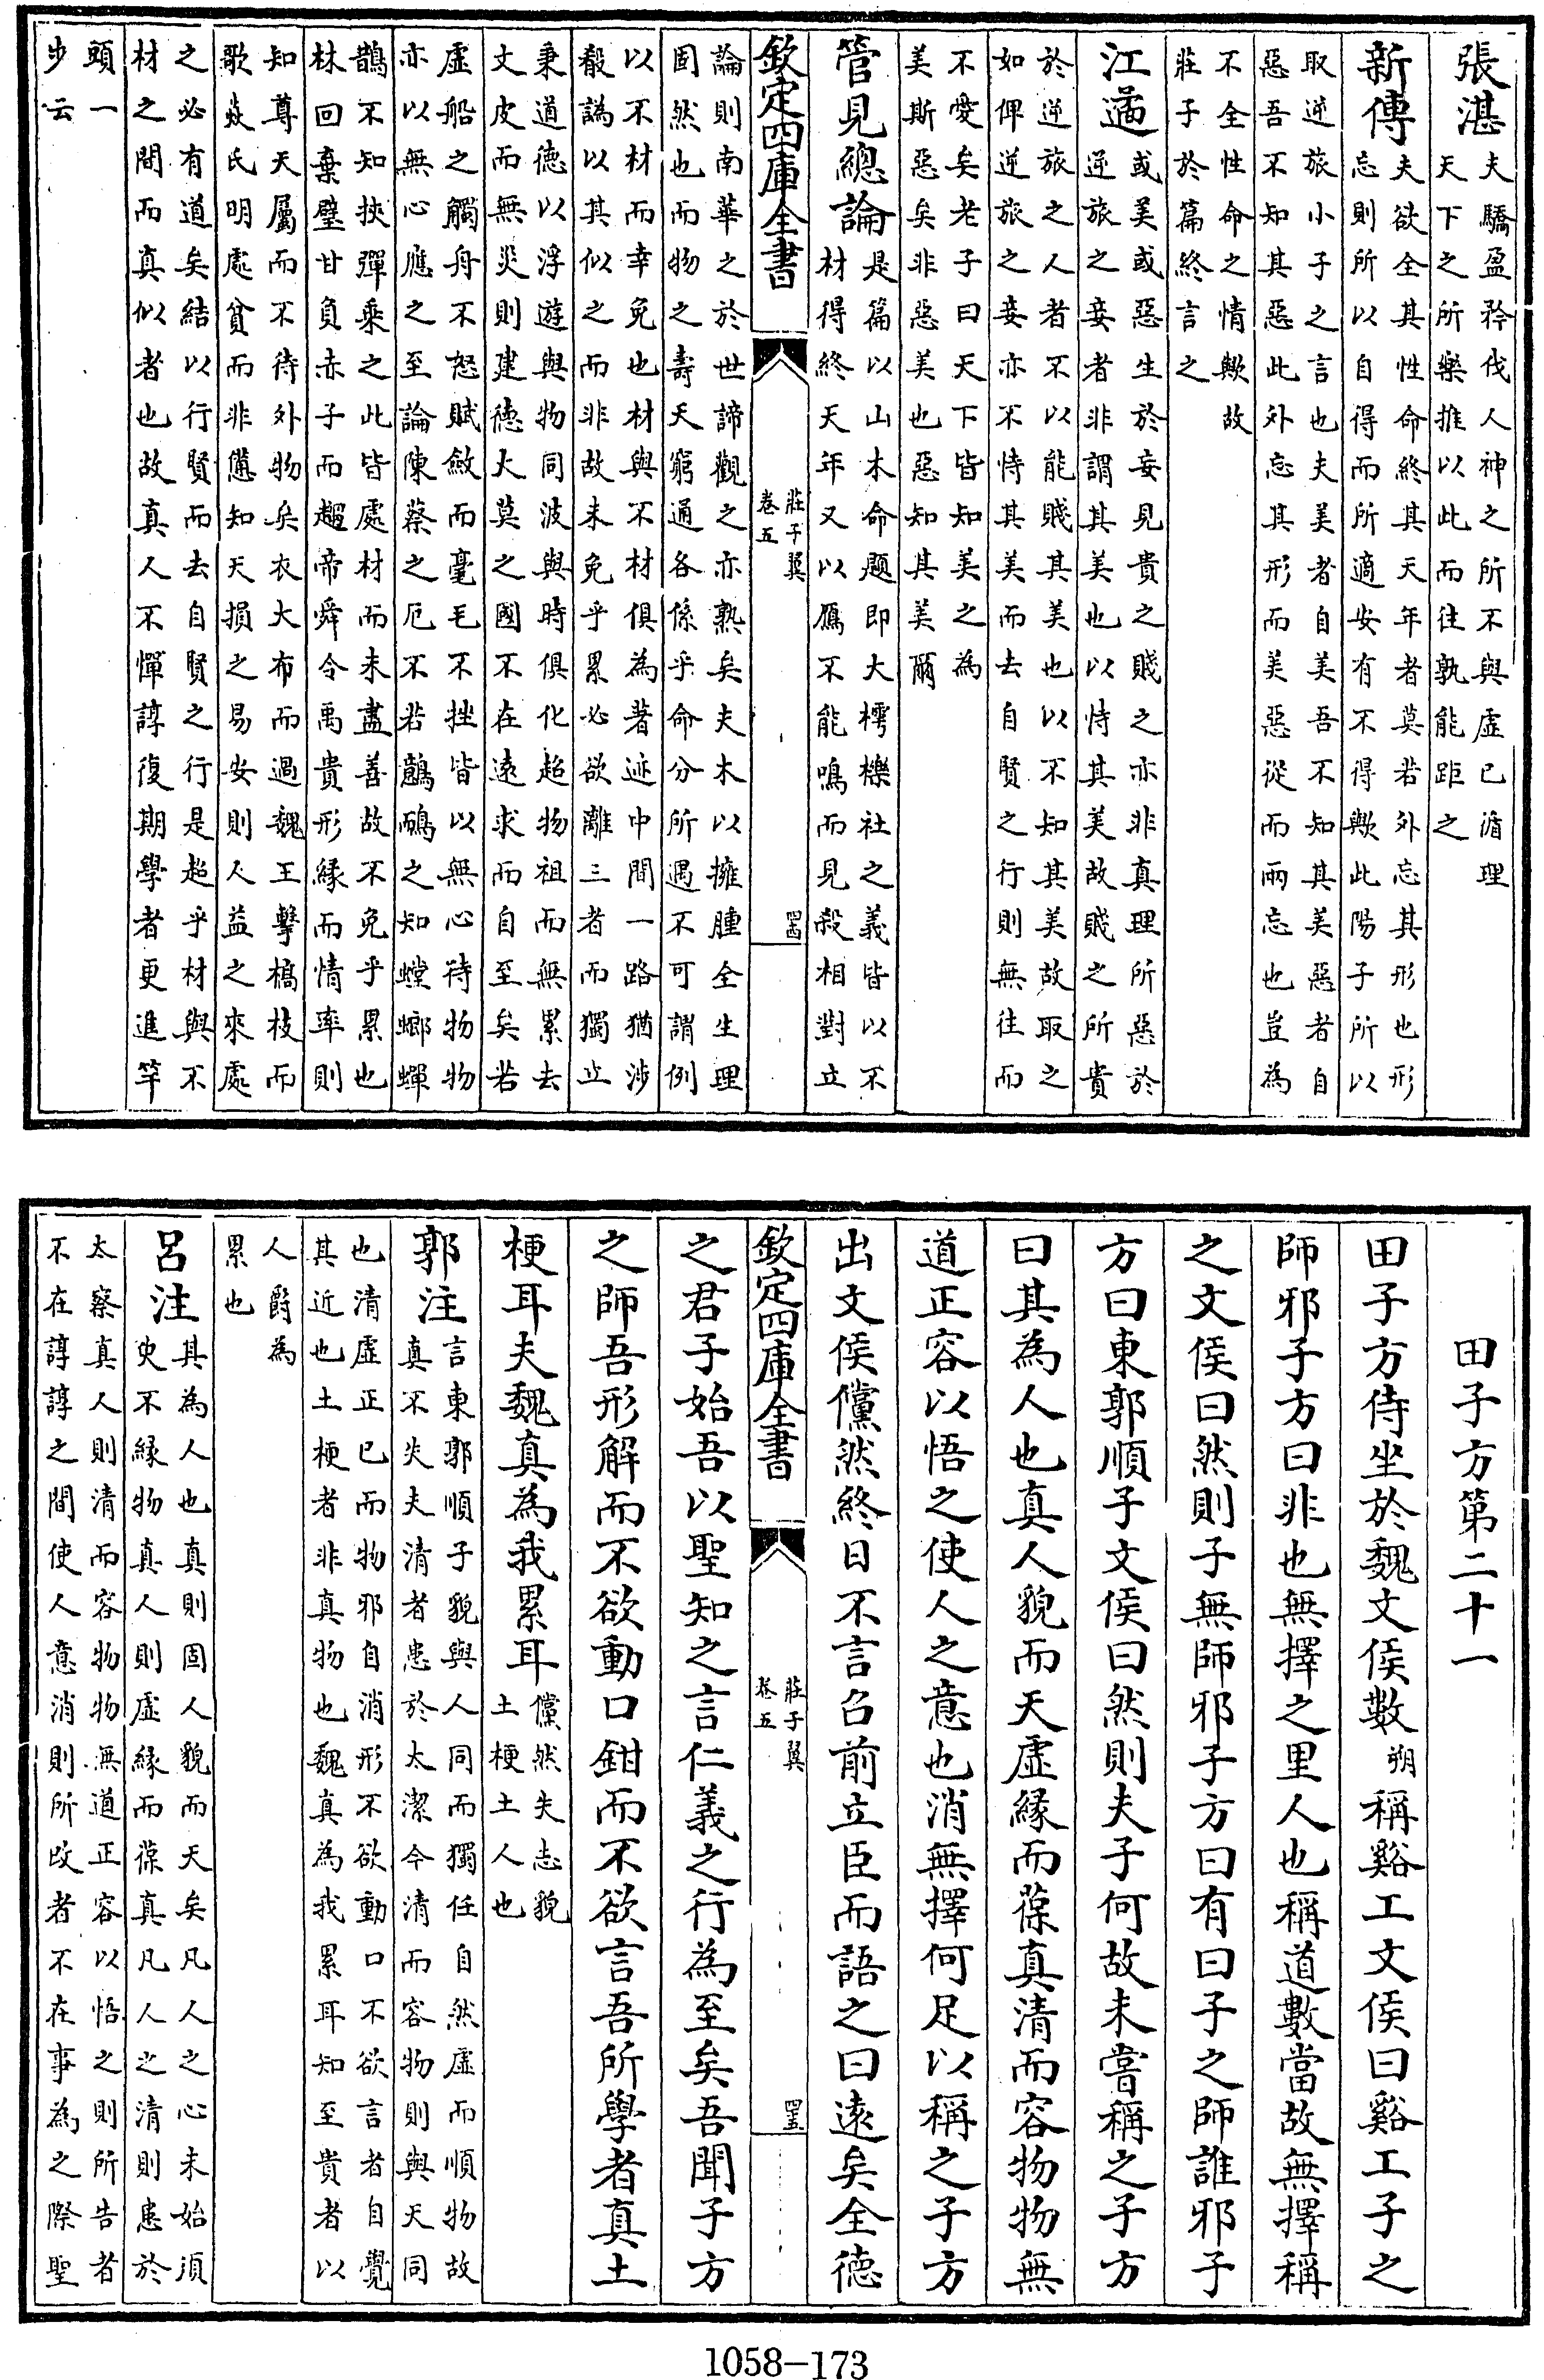 張湛夫驕盈矜伐人神之所不與虛已循理
天下之所樂推以此而往孰能距之
新傳夫欲全其性命終其天年者莫若外忘其形也形
忘則所以自得而所適安有不得歟此陽子所以
取逆旅小子之言也夫美者自美吾不知其美惡者自
惡吾不知其惡此外忘其形而美惡從而兩忘也豈為
不全性命之情歟故
莊子於篇終言之
江遹或美或惡生於妄見貴之賤之亦非真理所惡於
逆旅之妾者非謂其美也以恃其美故賤之所貴
於逆旅之人者不以能賤其美也以不知其美故取之
如俾逆旅之妾亦不恃其美而去自賢之行則無往而
不愛矣老子曰天下皆知美之為
美斯惡矣非惡美也惡知其美爾
管見總論是篇以山木命題即大樗櫟社之義皆以不
材得終天年又以鴈不能鳴而見殺相對立
欽定四庫全書
莊子翼
卷五
罒西
論則南華之於世諦觀之亦熟矣夫木以擁腫全生理
固然也而物之壽夭窮通各係乎命分所遇不可謂例
以不材而幸免也材與不材俱為著迹中間一路猶涉
殽譌以其似之而非故未免乎累必欲離三者而獨立
秉道德以浮遊與物同波與時俱化超物祖而無累去
文皮而無災則建德大莫之國不在遠求而自至矣若
虛船之觸舟不怒賦斂而毫毛不挫皆以無心待物物
亦以無心應之至論陳蔡之厄不若鷾鴯之知螳螂蟬
鵲不知挾彈乘之此皆處材而未盡善故不免乎累也
林回棄璧甘負赤子而趨帝舜令禹貴形緣而情率則
知尊天屬而不待外物矣衣大布而過魏王擊槁枝而
歌焱氏明處貧而非憊知天損之易安則人益之來處
之必有道矣結以行賢而去自賢之行是超乎材與不
材之間而真似者也故真人不憚諄復期學者更進竿
頭一
步云
田子方第二十一
田子方侍坐於魏文侯數朔稱谿工文侯曰谿工子之
師邪子方曰非也無擇之里人也稱道數當故無擇稱
之文侯曰然則子無師邪子方曰有曰子之師誰邪子
方曰東郭順子文侯曰然則夫子何故未嘗稱之子方
曰其為人也真人貌而天虛緣而葆真清而容物物無
道正容以悟之使人之意也消無擇何足以稱之子方
出文侯儻然終日不言召前立臣而語之曰遠矣全德
欽定四庫全書
莊子翼
卷五
罒五
之君子始吾以聖知之言仁義之行為至矣吾聞子方
之師吾形解而不欲動口鉗而不欲言吾所學者真土
梗耳夫魏真為我累耳儻然失志貌
土梗土人也
郭注言東郭順子貌與人同而獨任自然虛而順物故
真不失夫清者患於太潔今清而容物則與天同
也清虛正已而物邪自消形不欲動口不欲言者自覺
其近也土梗者非真物也魏真為我累耳知至貴者以
人爵為
累也
呂注其為人也真則固人貌而天矣凡人之心未始須
臾不緣物真人則虛緣而葆真凡人之清則患於
太察真人則清而容物物無道正容以悟之則所告者
不在諄諄之間使人意消則所改者不在事為之際聖
1058-173